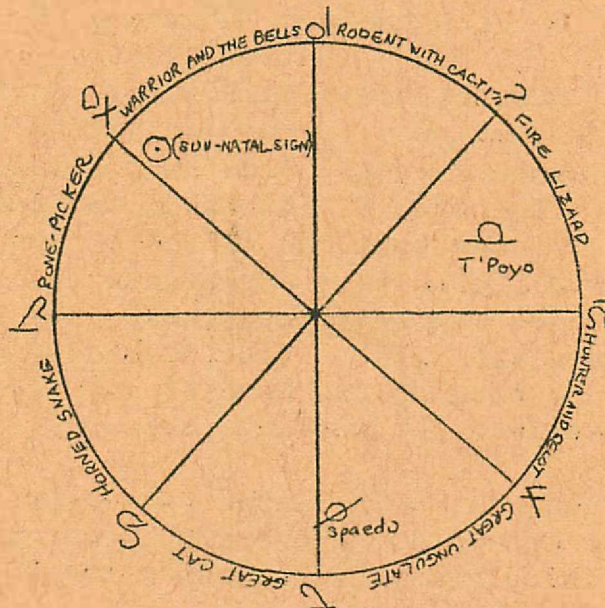 WARRIOR AND THE BELLS
RODENT WITH CACTI
FIRE LIZARD
HUNTER AND OCELOT
GREAT UNGULATE
GREAT CAT
HORNED SNAKE
BONE-PICKER
(SUN-NATAL SIGN)
T'Poyo
Spaedu